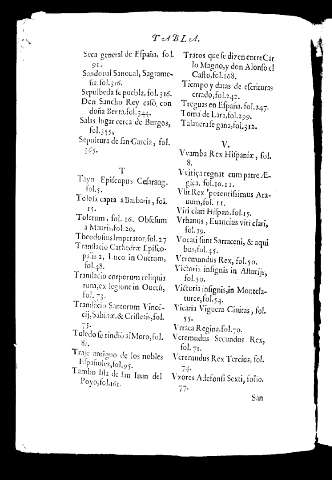 TABLA.
Seca general de España, fol.
91.
Sandoual Sanoual, Sagrame-
ña.fol.316.
Sepulbeda se puebla, fol.316.
Don Sancho Rey casò, con
doña Berta, fol.344.
Salas lugar cerca de Burgos,
fol.355.
Sepultura de san Garcia, fol.
365.
T
Tayn Episcopus Cesaraug.
fol.5.
Tolosa capta à Barbaris, fol.
15.
Toletum, fol. 16. Obsesum
à Mauris, fol.20.
Theodosius Imperator, fol.27
Translatio Cathedræ Episco-
palis 2, Luco in Ouetum,
fol.58.
Translatio corporum reliquia
rum, ex legione in Ouetū,
fol. 73.
Translatio Sanctorum Vincē-
tij, Sabinæ & Cristetis, fol.
73.
Toledo se rindiò al Moro, fol.
82.
Traje antiguo de los nobles
Españoles, fol.95.
Tambo Isla de san Iuan del
Poyo, fol.161.
Tratos que se dizen entre Car
lo Magno, y don Alonso el
Casto, fol.168.
Tiempo y datas de escrituras
errado, fol.242.
Treguas en España. fol.247.
Toma de Lara, fol.299.
Talauera se gana, fol.312.
V.
Vvamba Rex Hispaniæ, fol.
8.
Vvitiça regnat cum patre E-
gica. fol.10.11.
Vlit Rex potentissimus Ara-
uum, fol.11.
Viri clari Hispan. fol.15.
Vrbanus, Euancius viri clari,
fol.19.
Vocati sunt Sarraceni, & aqui
bus, fol.35.
Veremundus Rex, fol.50.
Victoria insignis in Asturijs,
fol.50.
Victoria insignis, in Montesa-
turce, fol.54.
Vicaria Viguera Ciuitas, fol.
55.
Vrraca Regina. fol.70.
Veremudus Secundus Rex,
fol. 71.
Veremundus Rex Tertius. fol.
74.
Vxores Aldefonsi Sexti, folio.
77.
San